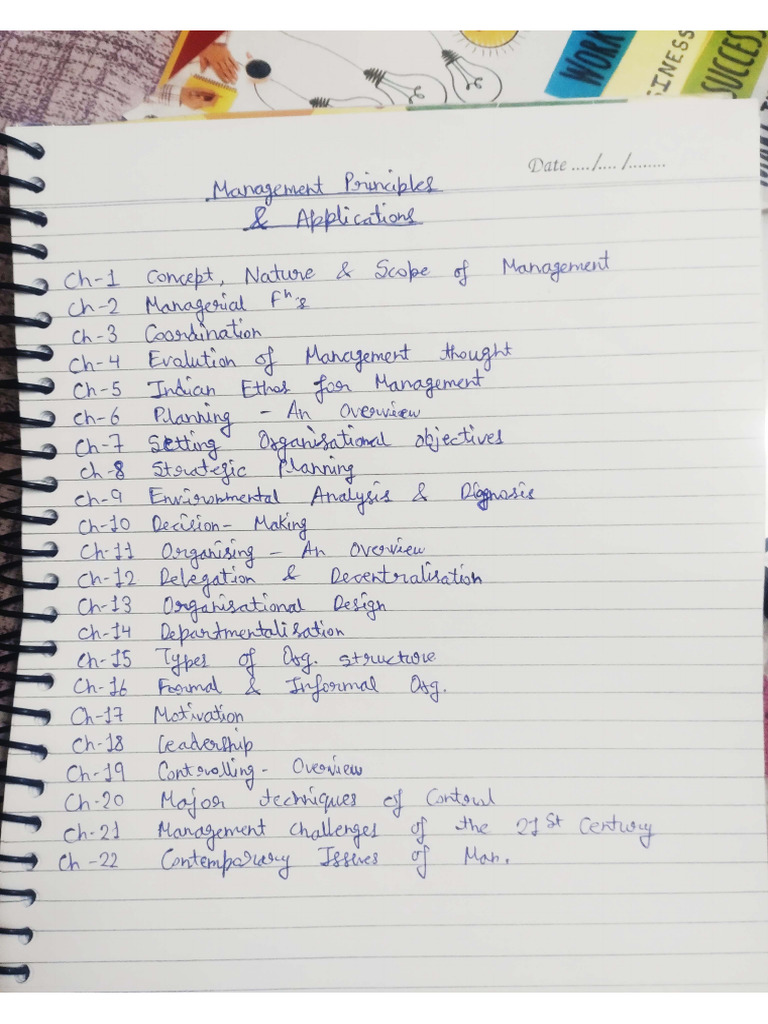 WORK
BUSINESS
SUCCESS
Date ..../.... /........
Management Principles
& Applications
Ch-1 Concept, Nature & Scope of Management
Ch-2 Managerial Fⁿ's
Ch-3 Coordination
Ch-4 Evalution of Management thought
Ch-5 Indian Ethos for Management
Ch-6 Planning - An Overview
Ch-7 Setting Organisational objectives
Ch-8 Strategic Planning
Ch-9 Environmental Analysis & Diagnosis
Ch-10 Decision- Making
Ch-11 Organising - An Overview
Ch-12 Delegation & Decentralisation
Ch-13 Organisational Design
Ch-14 Departmentalisation
Ch-15 Types of Org. structure
Ch-16 Formal & Informal Org.
Ch-17 Motivation
Ch-18 Leadership
Ch-19 Controlling - Overview
Ch-20 Major techniques of Control
Ch-21 Management Challenges of the 21st Century
Ch-22 Contemporary Issues of Man.